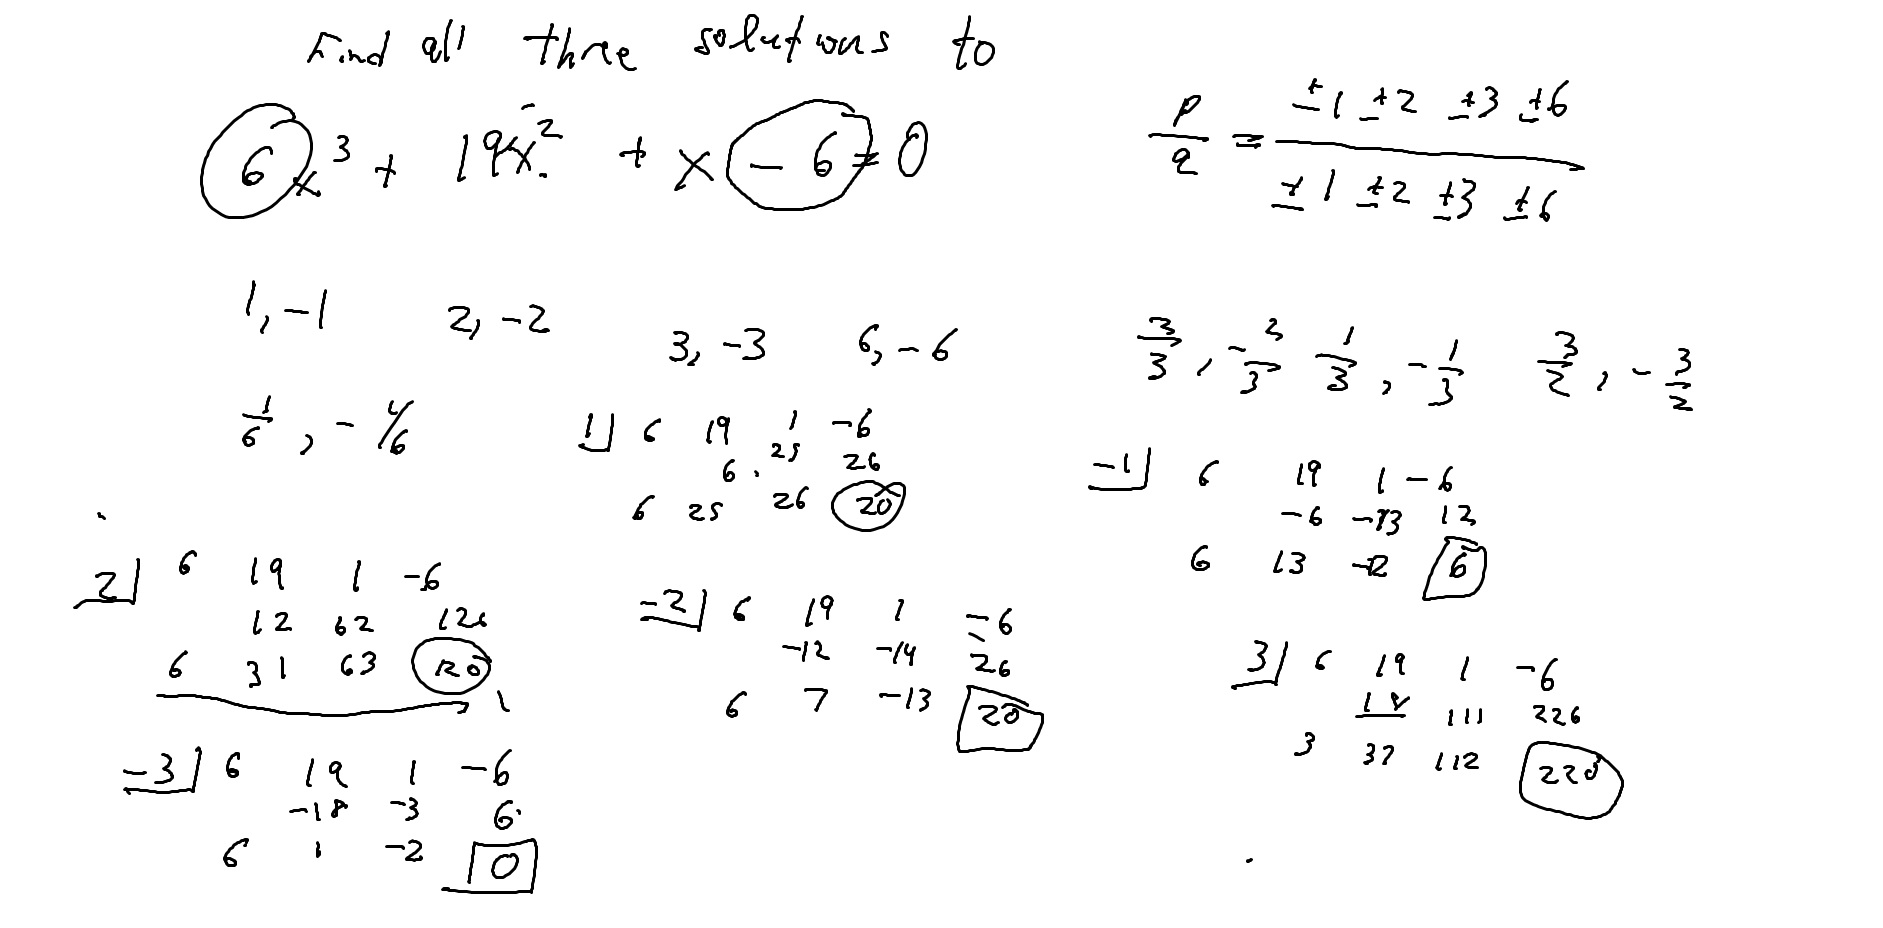 Find all three solutions to
6x³ + 19x² + x - 6 = 0
p/q = ±1 ±2 ±3 ±6 / ±1 ±2 ±3 ±6
1, -1 2, -2 3, -3 6, -6
3/3, -2/3 1/3, -1/3 3/2, -3/2
1/6, -1/6
1⌋ 6 19 1 -6
6 25 26
6 25 26 20
-1⌋ 6 19 1 -6
-6 -13 12
6 13 -12 6
2⌋ 6 19 1 -6
12 62 126
6 31 63 120
-2⌋ 6 19 1 -6
-12 -14 26
6 7 -13 20
3⌋ 6 19 1 -6
18 111 226
3 37 112 220
-3⌋ 6 19 1 -6
-18 -3 6
6 1 -2 0